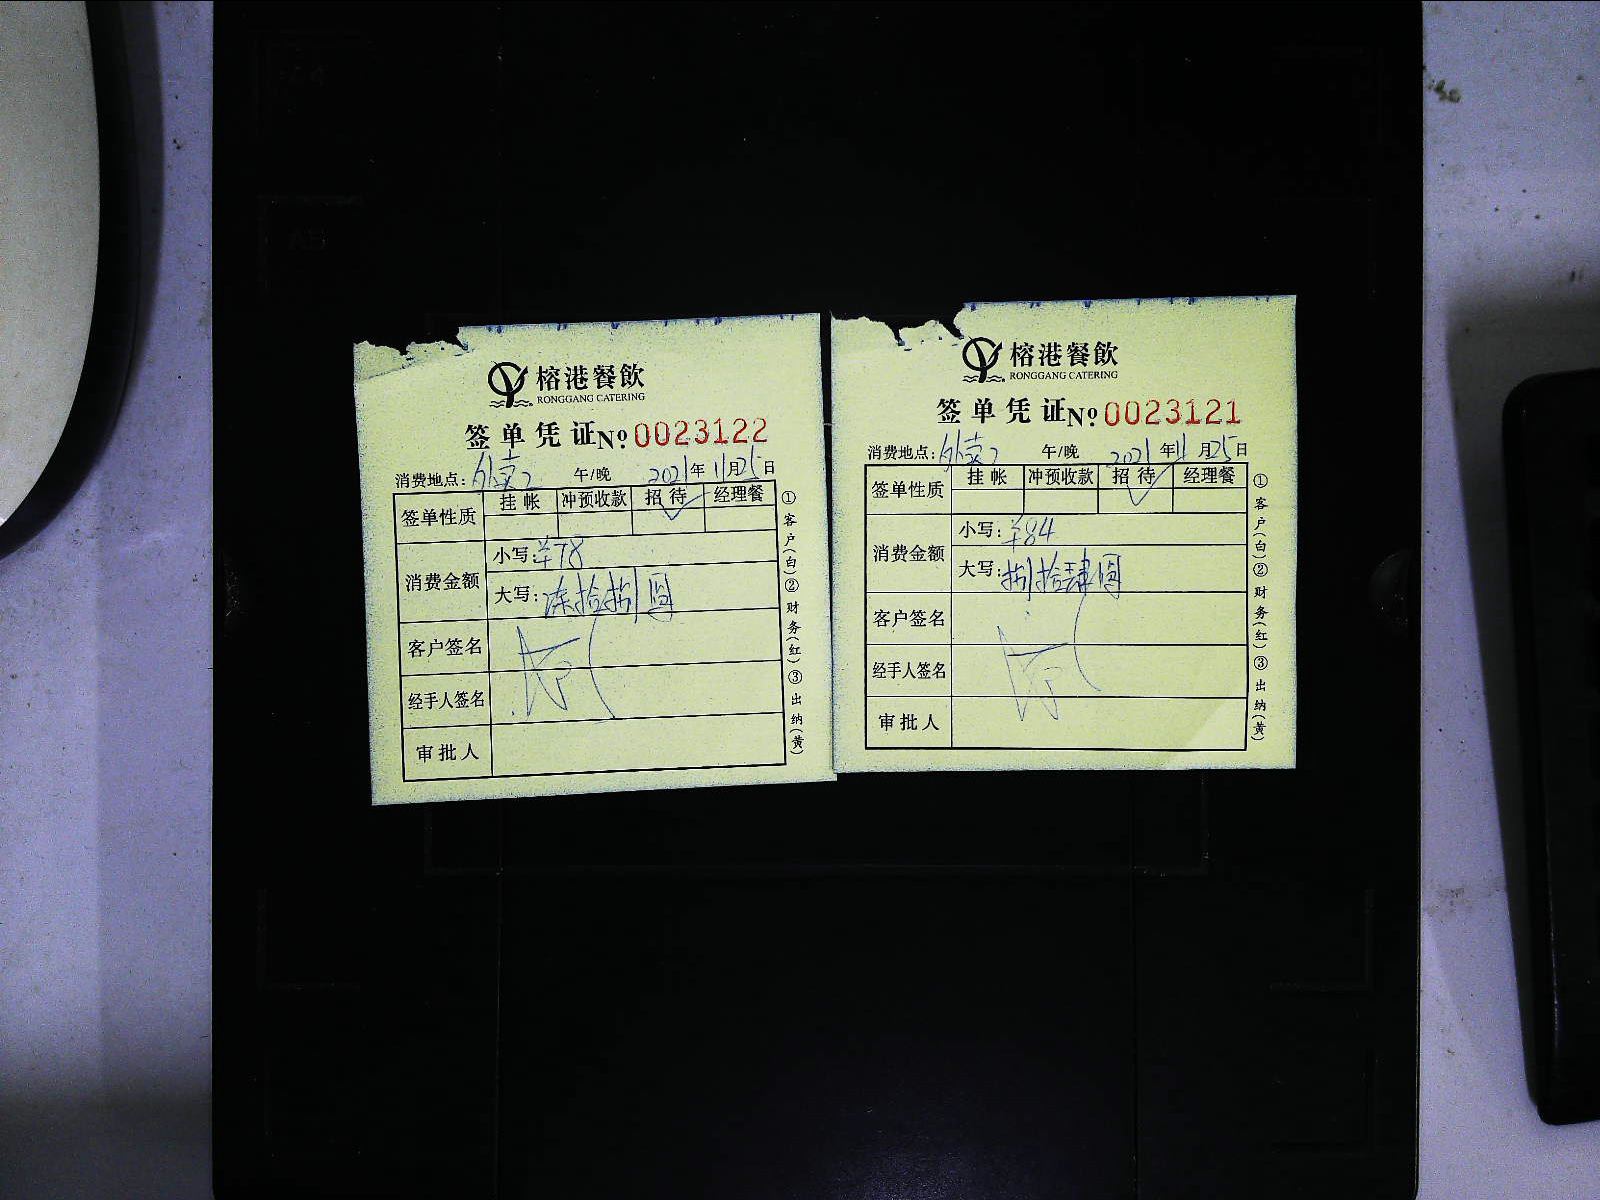 榕港餐飲
RONGGANG CATERING
签单凭证 № 0023122
消费地点：外卖2 午/晚 2021年11月25日
签单性质 挂帐 冲预收款 招待 经理餐
✓
消费金额
小写：¥78
大写：柒拾捌圆
客户签名
经手人签名
审批人
①客户（白）②财务（红）③出纳（黄）
榕港餐飲
RONGGANG CATERING
签单凭证 № 0023121
消费地点：外卖2 午/晚 2021年11月25日
签单性质 挂帐 冲预收款 招待 经理餐
✓
消费金额
小写：¥84
大写：捌拾肆圆
客户签名
经手人签名
审批人
①客户（白）②财务（红）③出纳（黄）